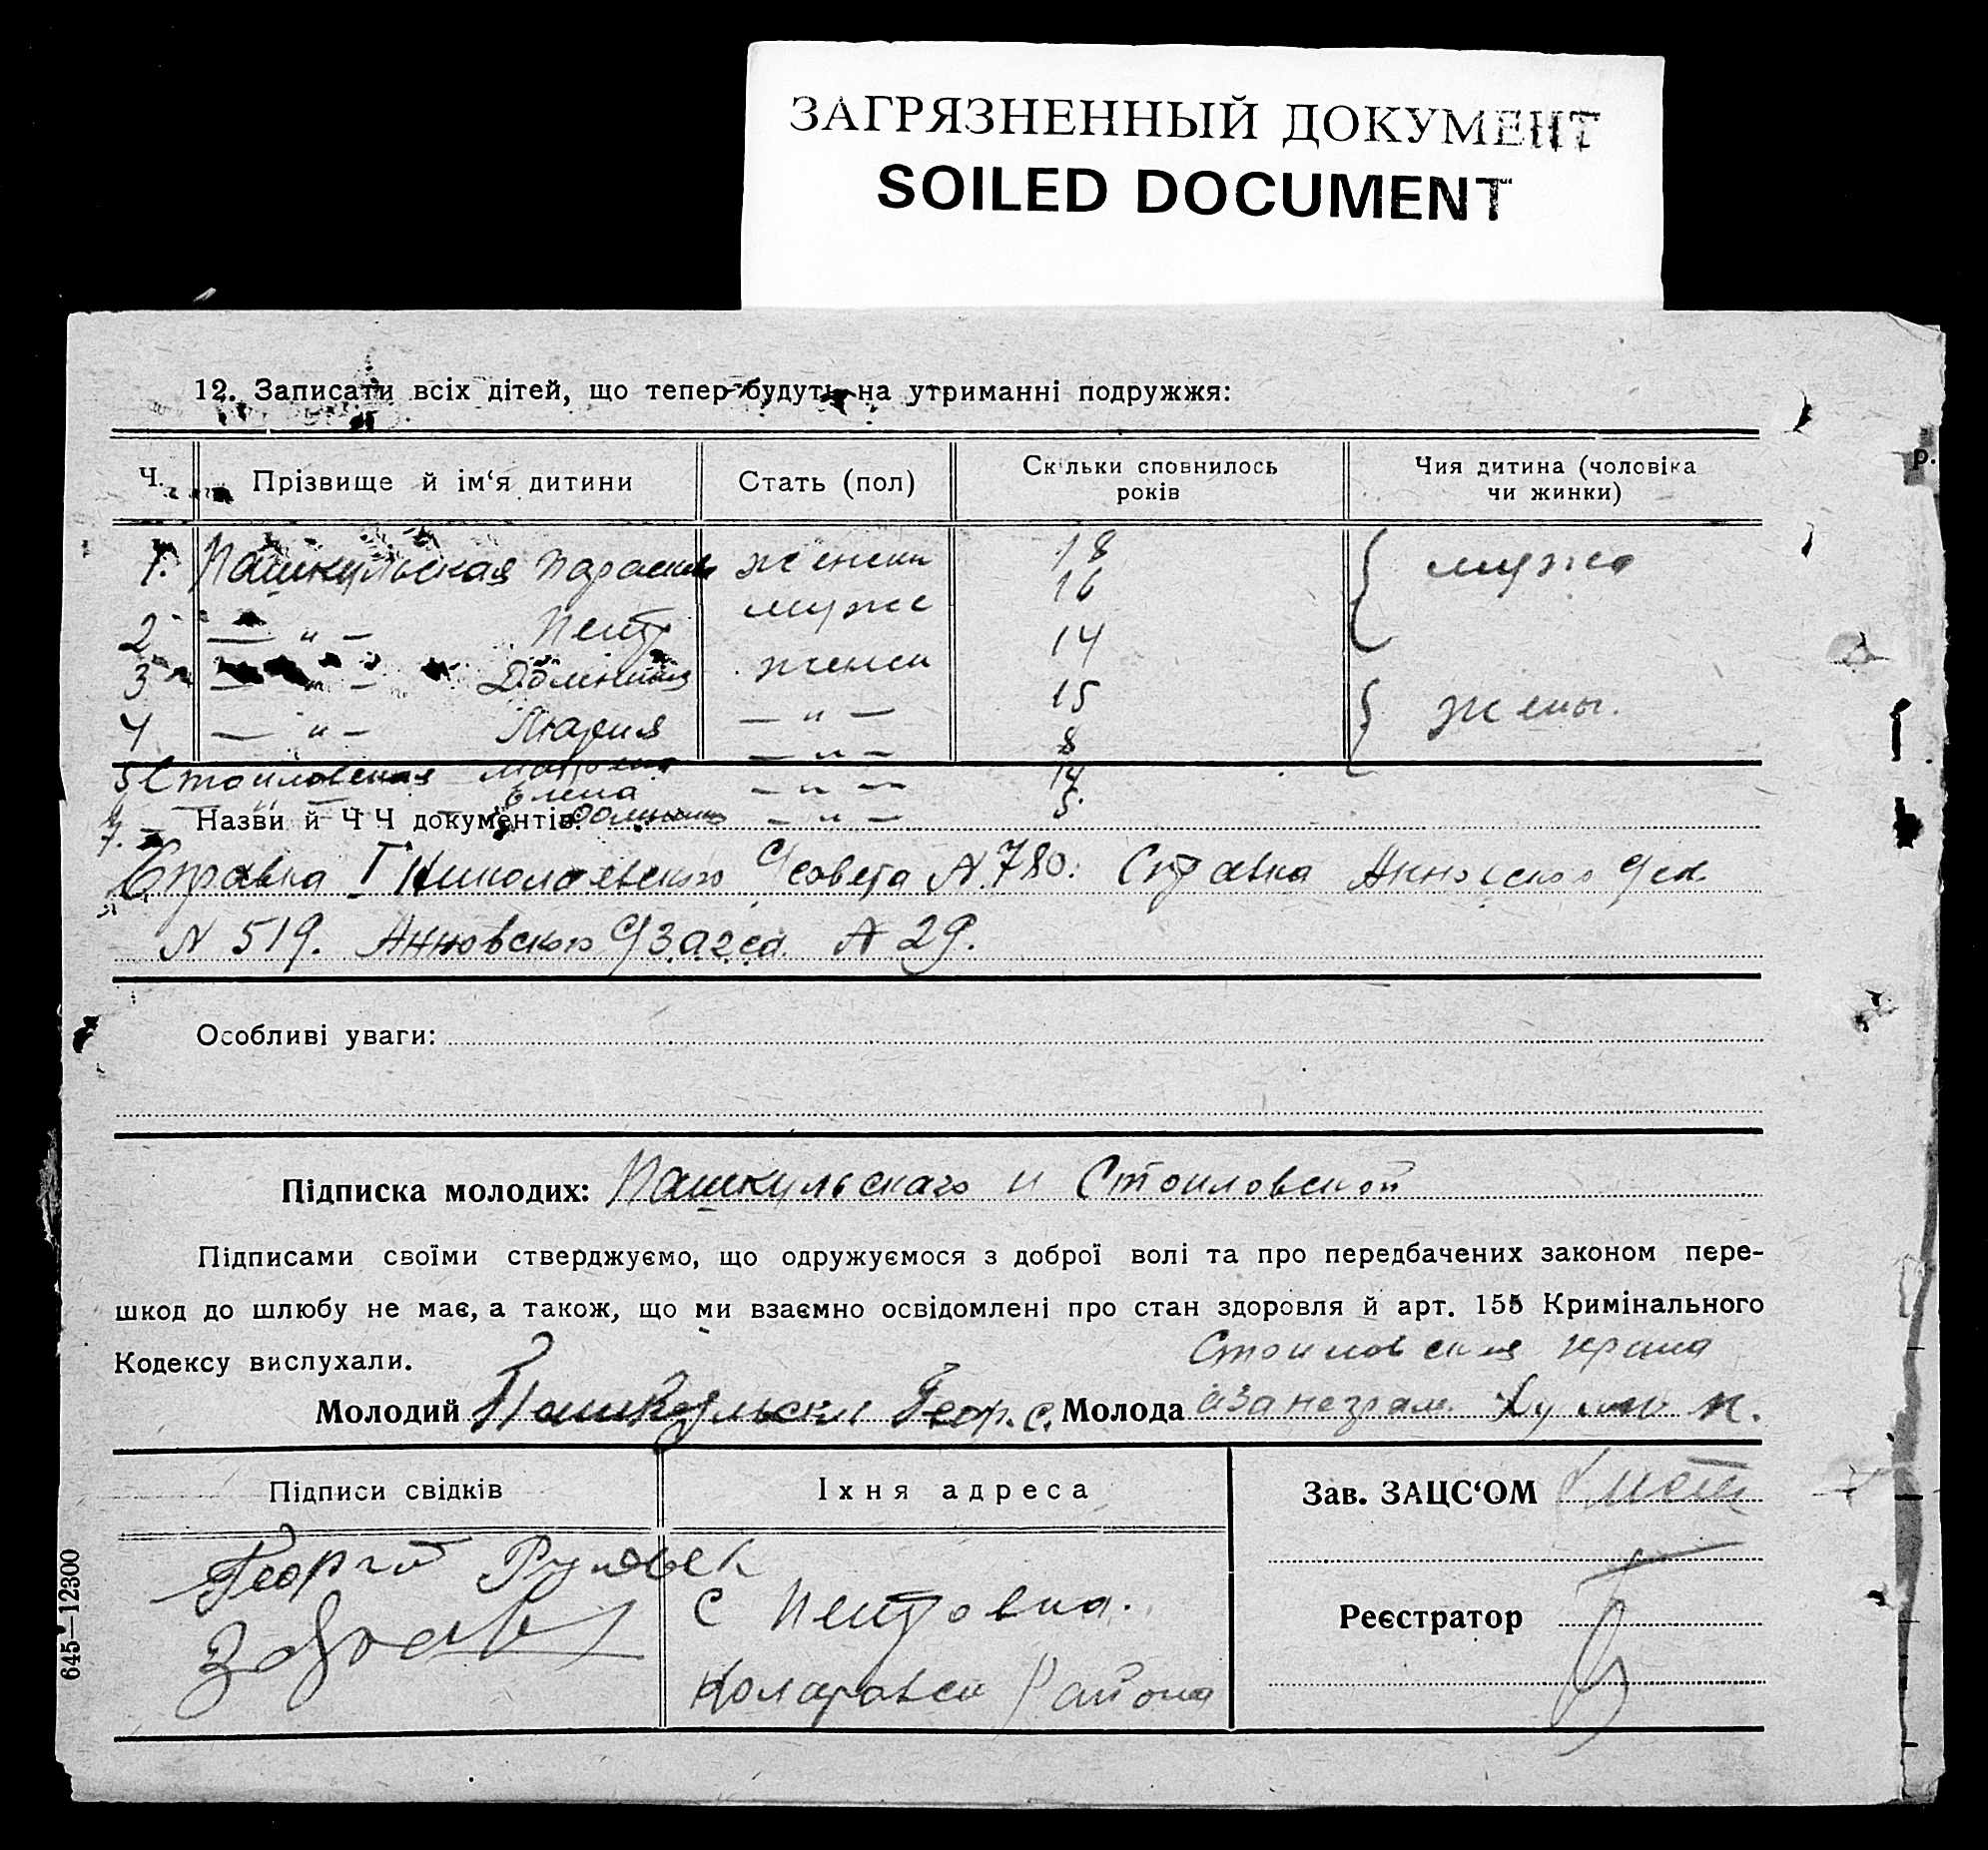 ЗАГРЯЗНЕННЫЙ ДОКУМЕНТ
SOILED DOCUMENT
12. Записати всіх дітей, що тепер будуть на утриманні подружжя:
Ч. Прізвище й ім‘я дитини Стать (пол) Скільки сповнилось років Чия дитина (чоловіка чи жинки)
1. Пашкульская женски 18 мужа
2 — " — Петр муже 16
3 — " — женск 14
4 — " — Мария — " — 15 жены.
5 Стоиловская — " — 8
Елена — " — 14
7. — " — 5
Назви й ЧЧ документів:
Справка I Николаевского С/совета N 780. Справка Анновского
N 519. Анновского 29.
Особливі уваги:
Підписка молодих: Пашкульскаго и Стоиловской
Підписами своїми стверджуємо, що одружуємося з доброї волі та про передбачених законом пере-
шкод до шлюбу не має, а також, що ми взаємно освідомлені про стан здоровля й арт. 155 Кримінального
Кодексу вислухали.
Стоиловская
Молодий Пашкульски Геор. С. Молода а за неграм.
Підписи свідків Їхня адреса Зав. ЗАЦС‘ОМ
Георгий
с Петровка.
Реєстратор
Коларовск Района
645—12300
р.